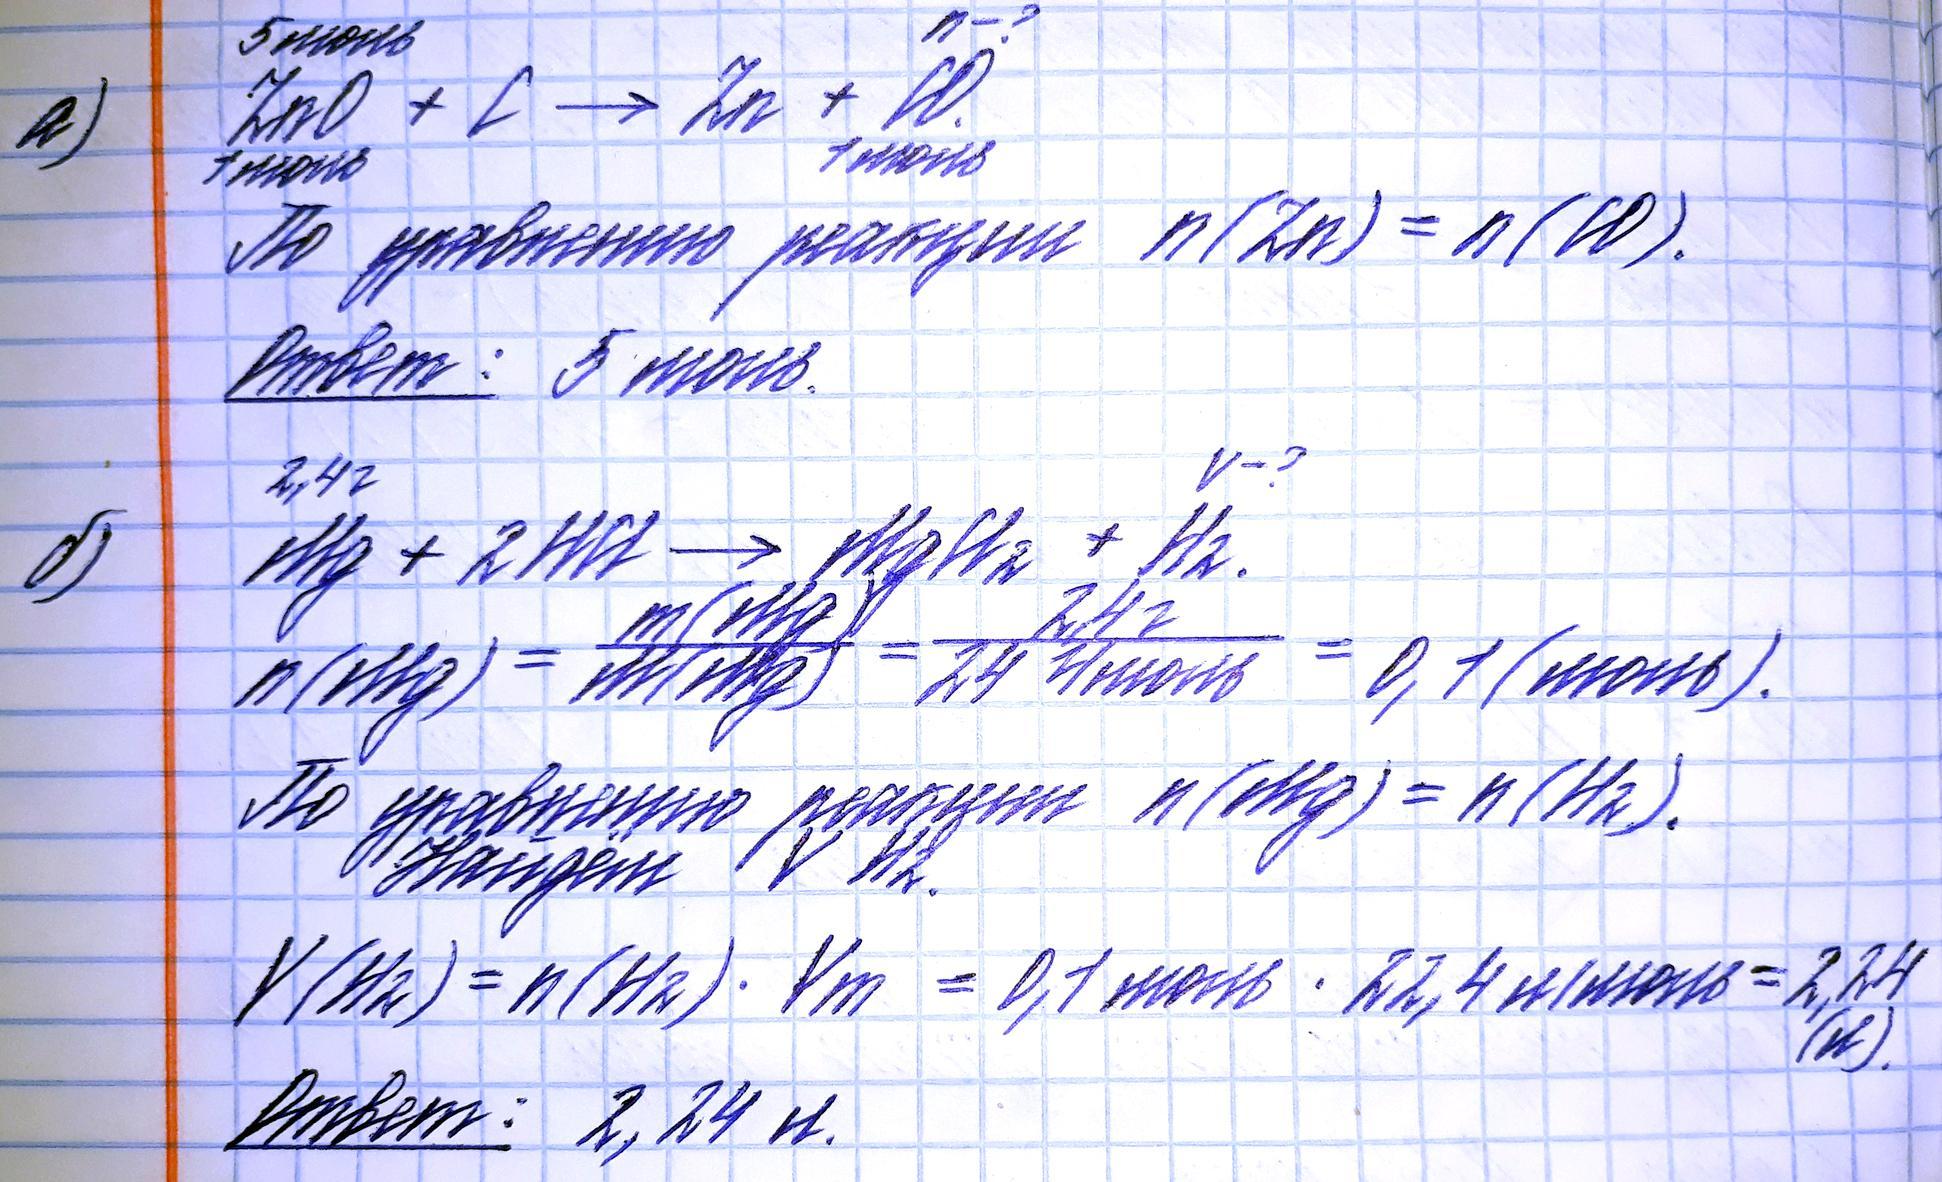 5 моль n-?
а) ZnO + C → Zn + CO.
1 моль 1 моль
По уравнению реакции n(Zn) = n(CO).
Ответ: 5 моль.
2,4г V-?
б) Mg + 2HCl → MgCl₂ + H₂.
n(Mg) = m(Mg)/M(Mg) = 2,4г/24 г/моль = 0,1 (моль).
По уравнению реакции n(Mg) = n(H₂).
Найдём V H₂.
V(H₂) = n(H₂) · Vm = 0,1 моль · 22,4 л/моль = 2,24
(л).
Ответ: 2,24 л.